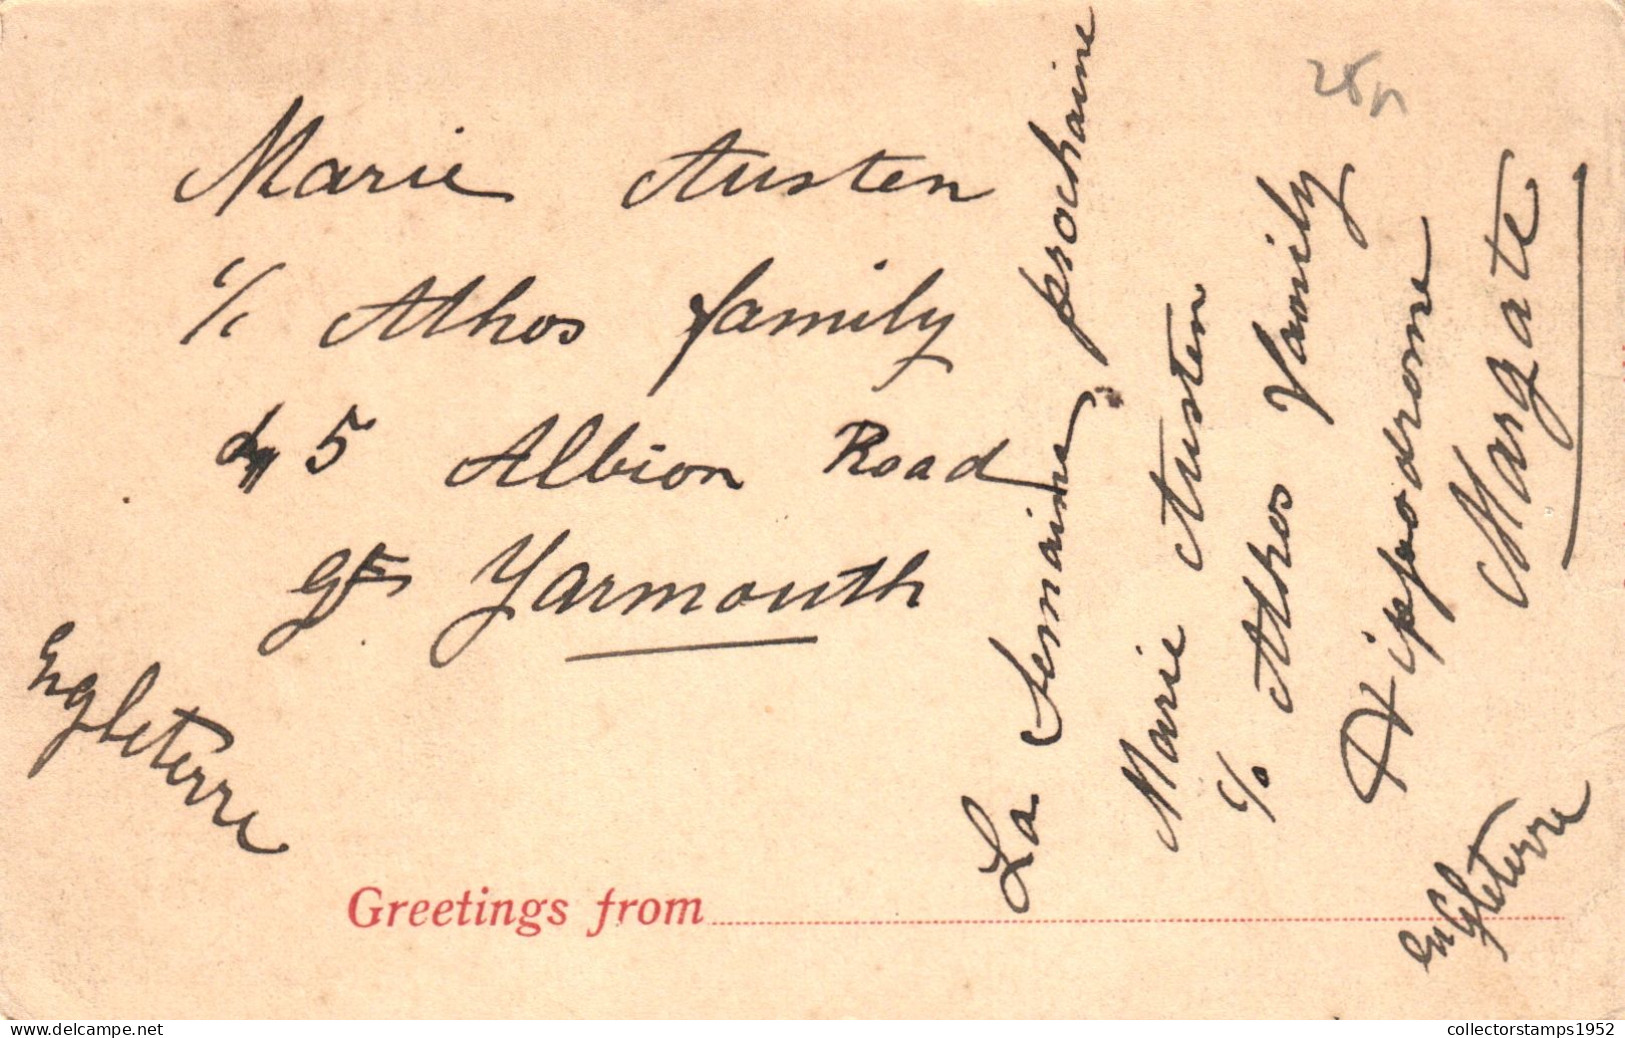 Marie Austen
c/. Athos family
45 Albion Road
Gt Yarmouth
Engleterre
La Semaine prochaine
Marie Austen
c/o Athos Family
Hippodrome
Margate
Engleterre
Greetings from
delcampe.net
collectorstamps1952